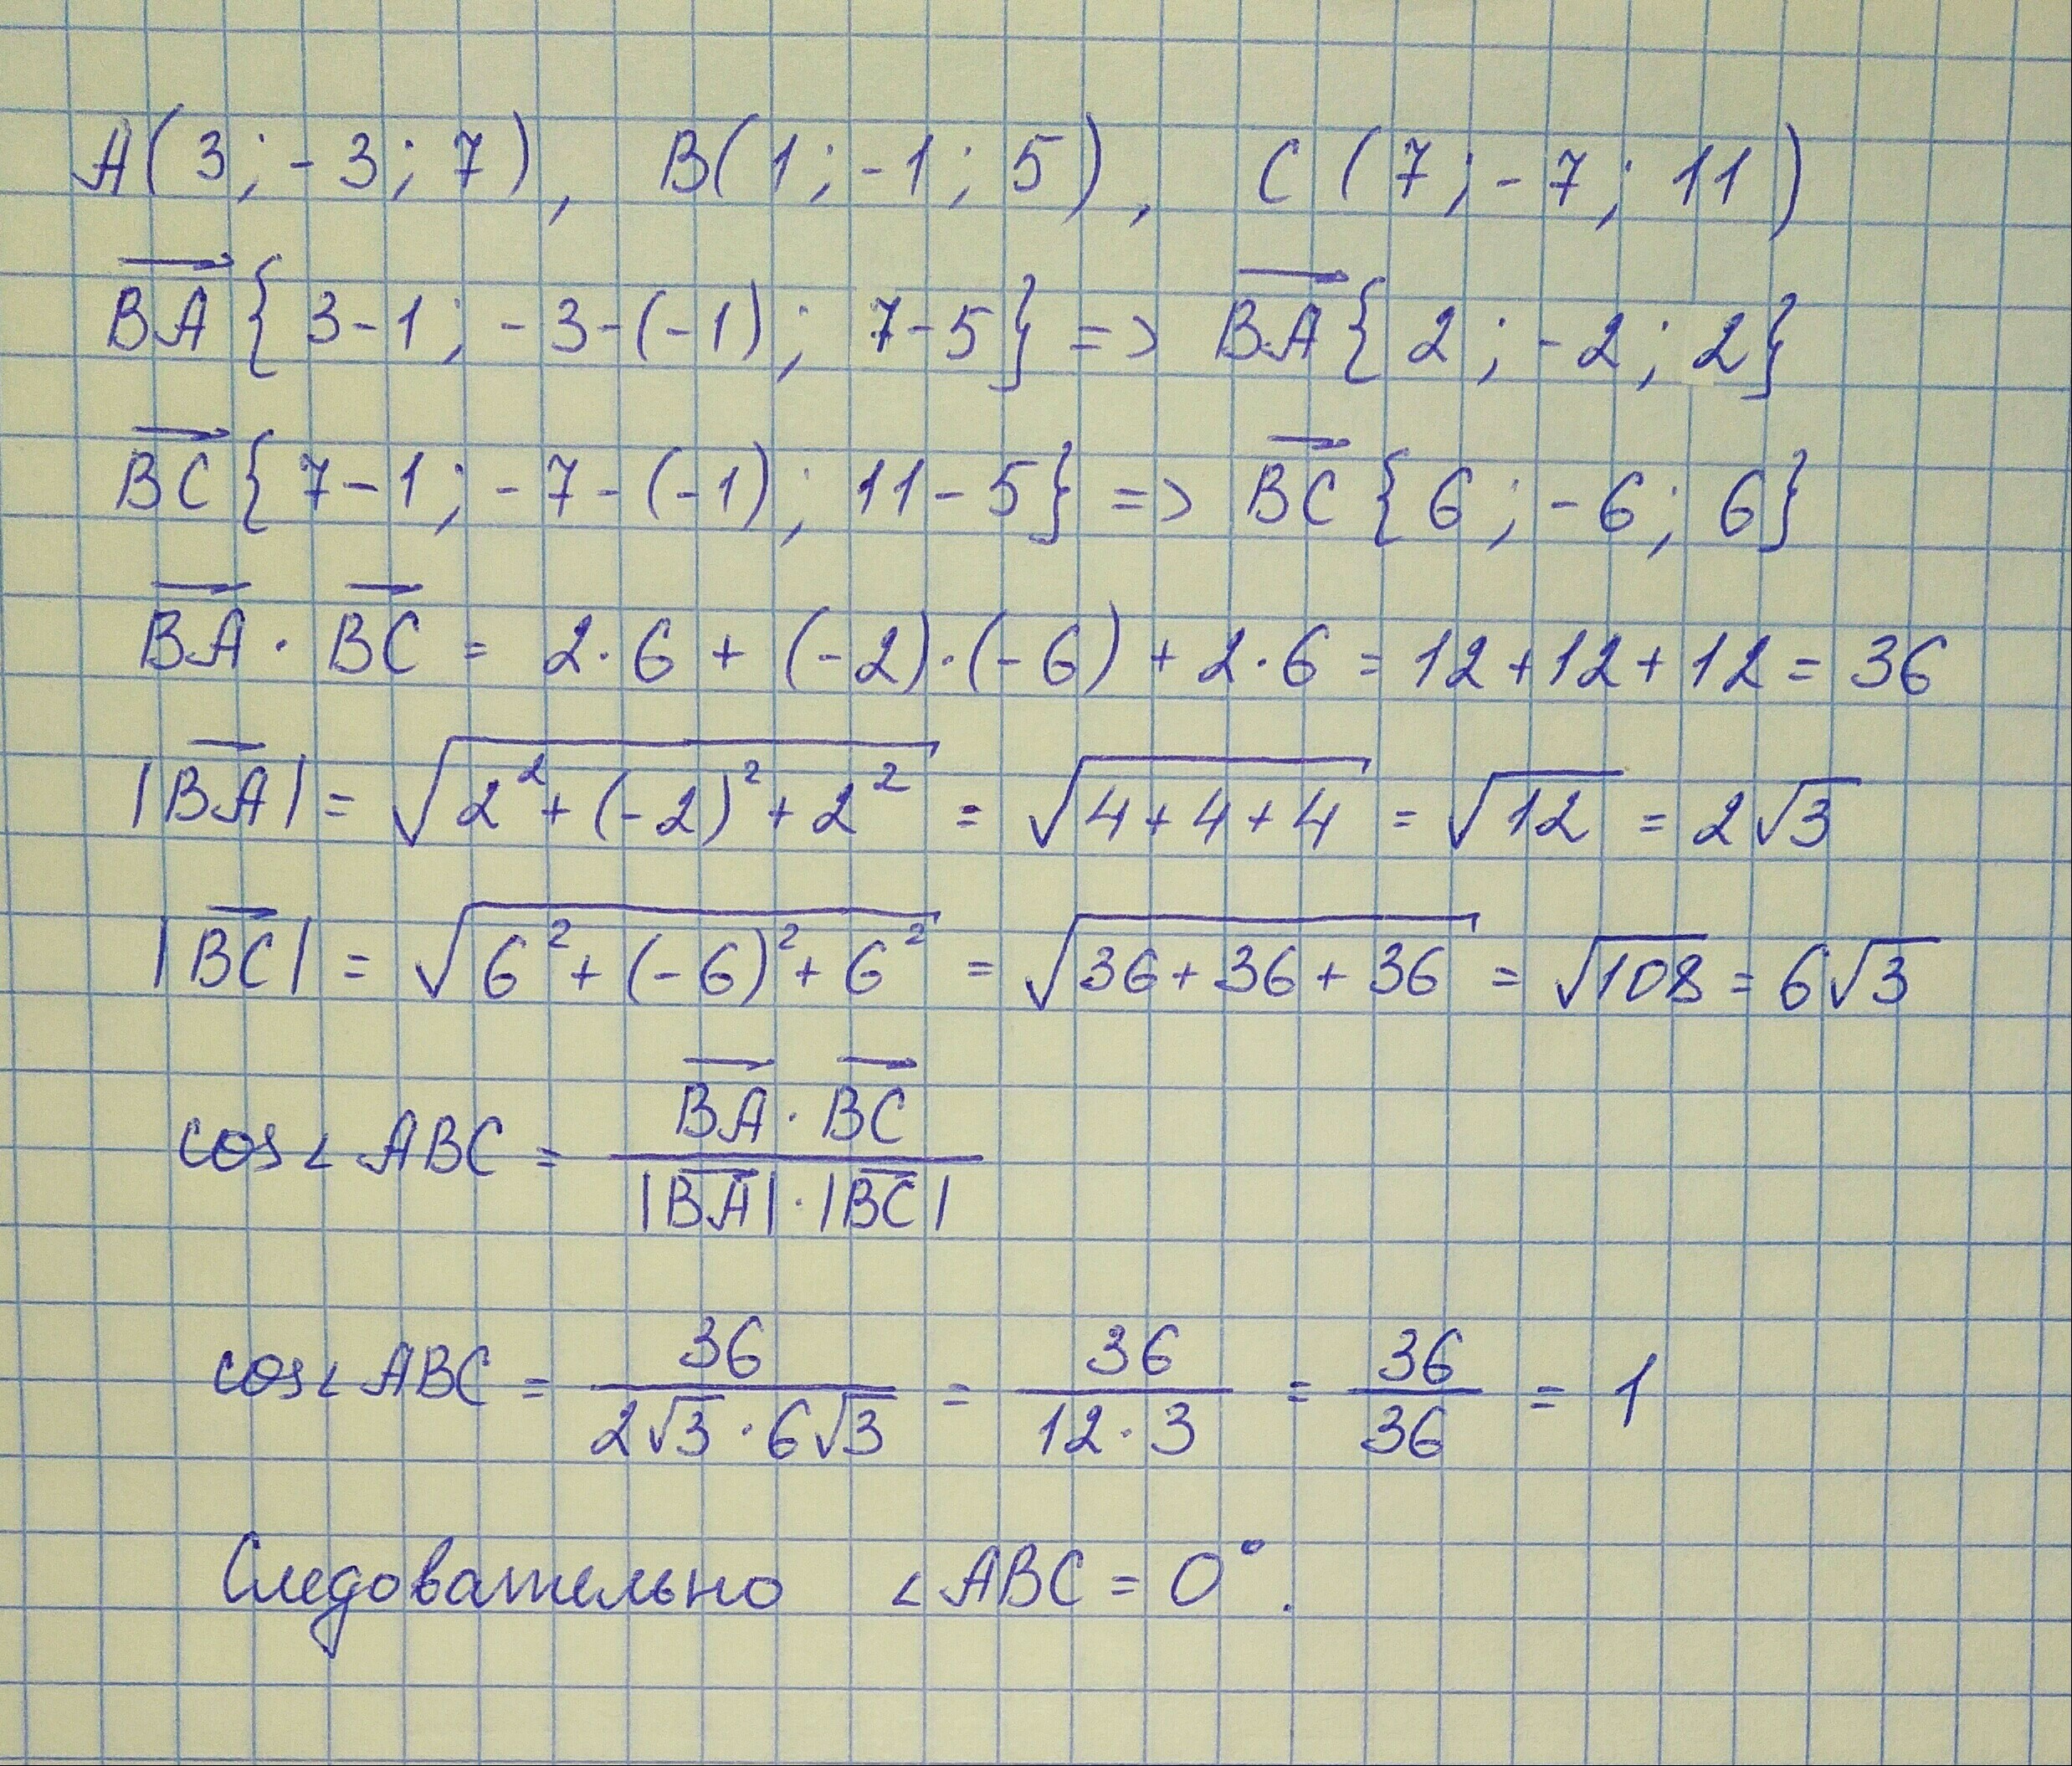 A(3; -3; 7), B(1; -1; 5), C(7; -7; 11)
BA{3-1; -3-(-1); 7-5} => BA{2; -2; 2}
BC{7-1; -7-(-1); 11-5} => BC{6; -6; 6}
BA · BC = 2·6 + (-2)·(-6) + 2·6 = 12+12+12 = 36
|BA| = √(2²+(-2)²+2²) = √(4+4+4) = √12 = 2√3
|BC| = √(6²+(-6)²+6²) = √(36+36+36) = √108 = 6√3
cos∠ABC = BA·BC / |BA|·|BC|
cos∠ABC = 36 / 2√3·6√3 = 36 / 12·3 = 36/36 = 1
Следовательно ∠ABC = 0°.